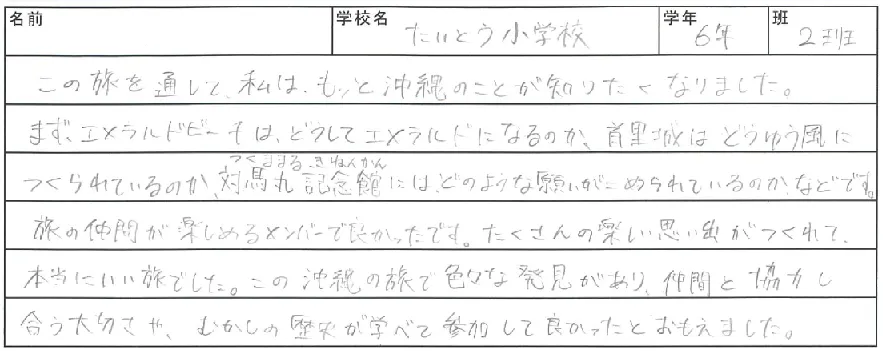 名前 学校名 たいとう小学校 学年 6年 班 2班
この旅を通して、私は、もっと沖縄のことが知りたくなりました。
まず、エメラルドビーチは、どうしてエメラルドになるのか、首里城はどうゆう風に
つくられているのか、対馬丸記念館には、どのような願いがこめられているのか、などです。
つしままる きねんかん
旅の仲間が楽しめるメンバーで良かったです。たくさんの楽しい思い出がつくれて、
本当にいい旅でした。この沖縄の旅で色々な発見があり、仲間と協力し
合う大切さや、むかしの歴史が学べて参加して良かったとおもえました。